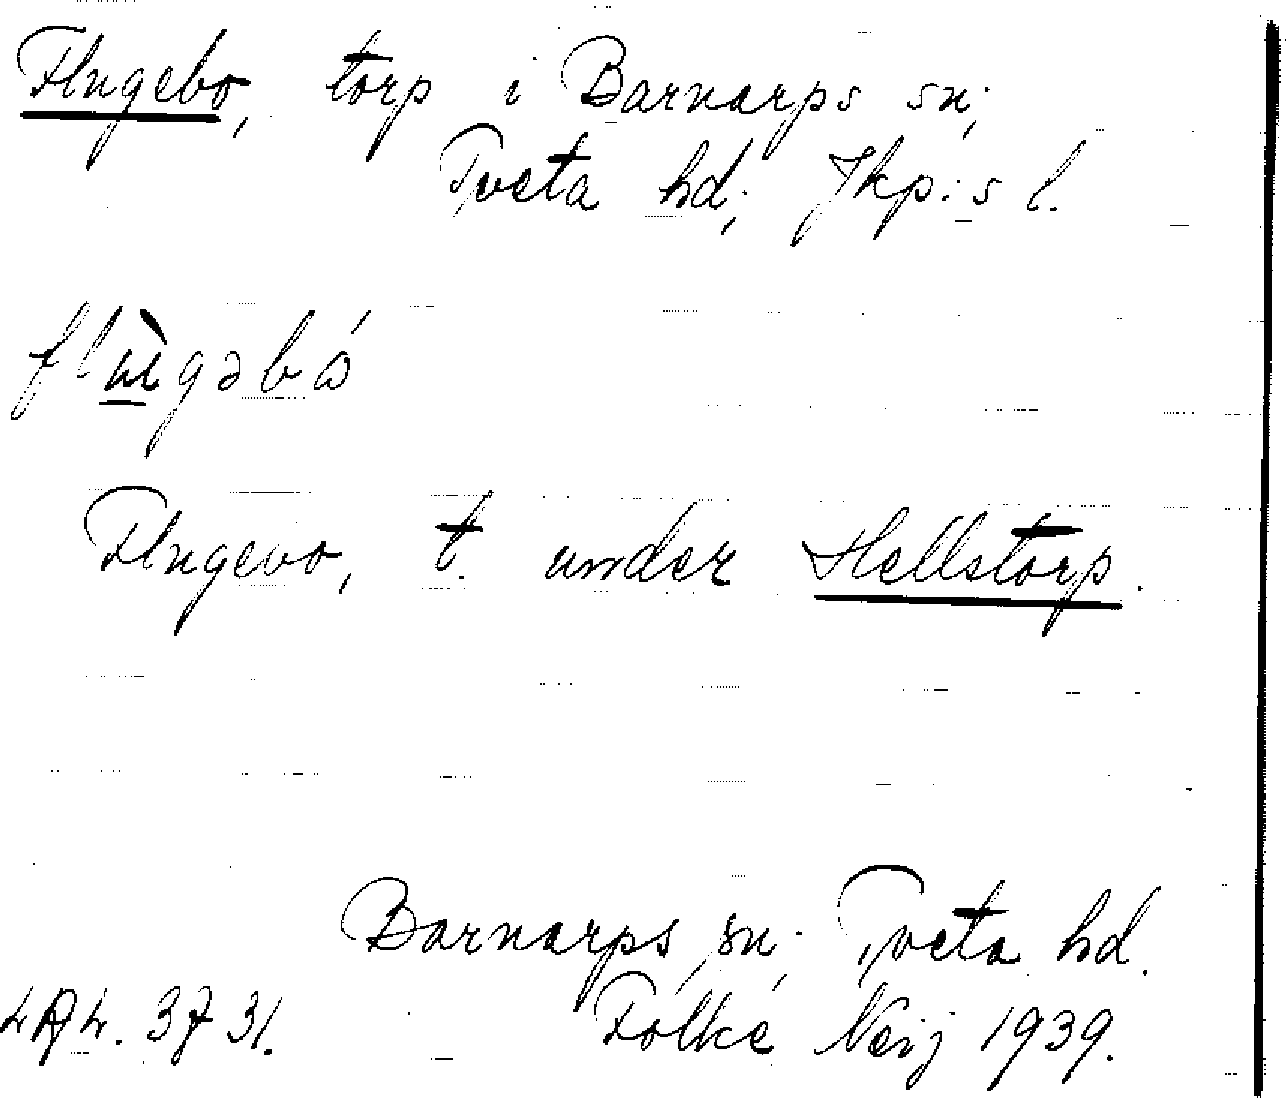 Flugebo, torp i Barnarps sn;
Tveta hd; Jkp:s l.
flɯ̀gəbó
Flugebo, t. under Hellstorp.
Barnarps sn; Tveta hd.
3731. Folke Neij 1939.